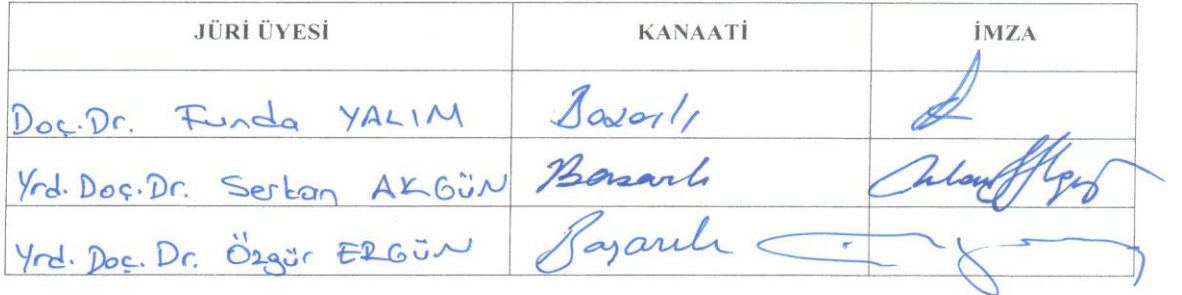 JÜRİ ÜYESİ KANAATİ İMZA
Doç.Dr. Funda YALIM Başarılı
Yrd. Doç.Dr. Serkan AKGÜN Başarılı
Yrd. Doç. Dr. Özgür ERGÜN Başarılı